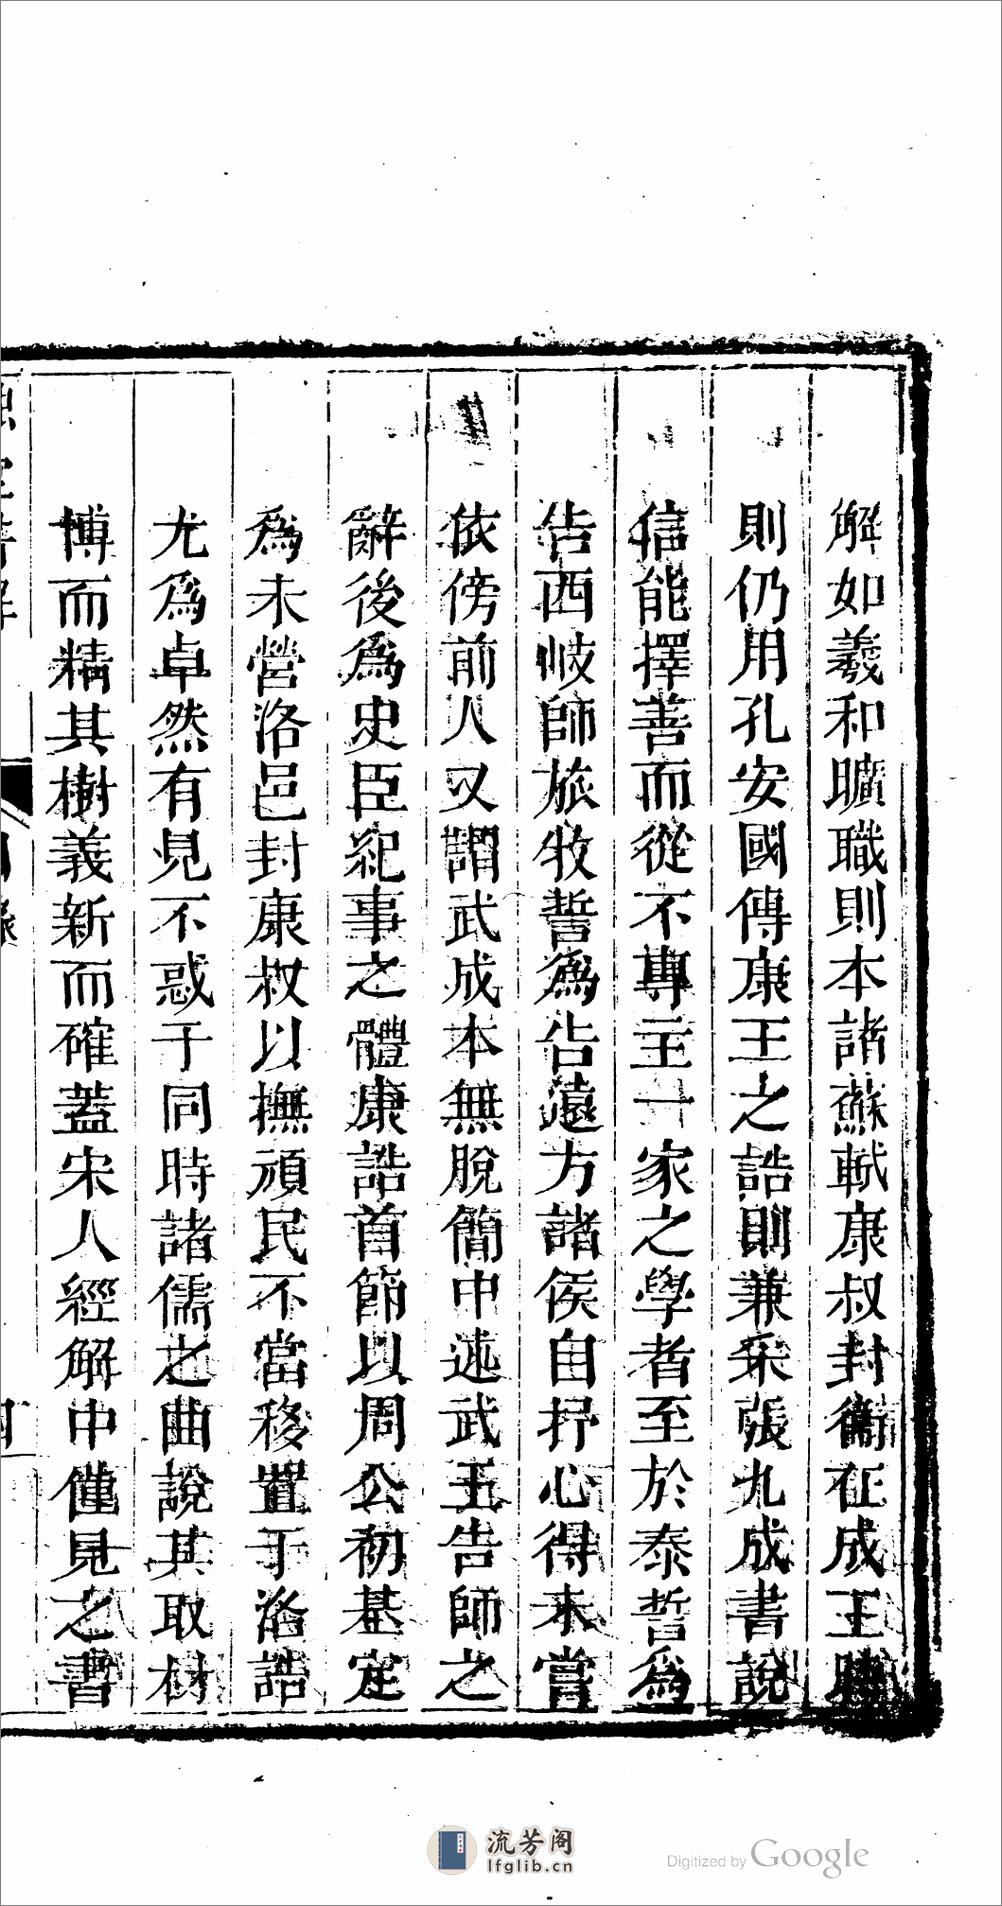 解如羲和曠職則本諸蘇軾康叔封衞在成王時
則仍用孔安國傳康王之誥則兼采張九成書說
信能擇善而從不專主一家之學者至於泰誓爲
告西岐師旅牧誓爲告遠方諸侯自抒心得未嘗
依傍前人又謂武成本無脫簡中述武王告師之
辭後爲史臣紀事之體康誥首節以周公初基定
爲未營洛邑封康叔以撫頑民不當移置于洛誥
尤爲卓然有見不惑于同時諸儒之曲說其取材
博而精其樹義新而確蓋宋人經解中僅見之書
流芳阁
lfglib.cn
Digitized by Google